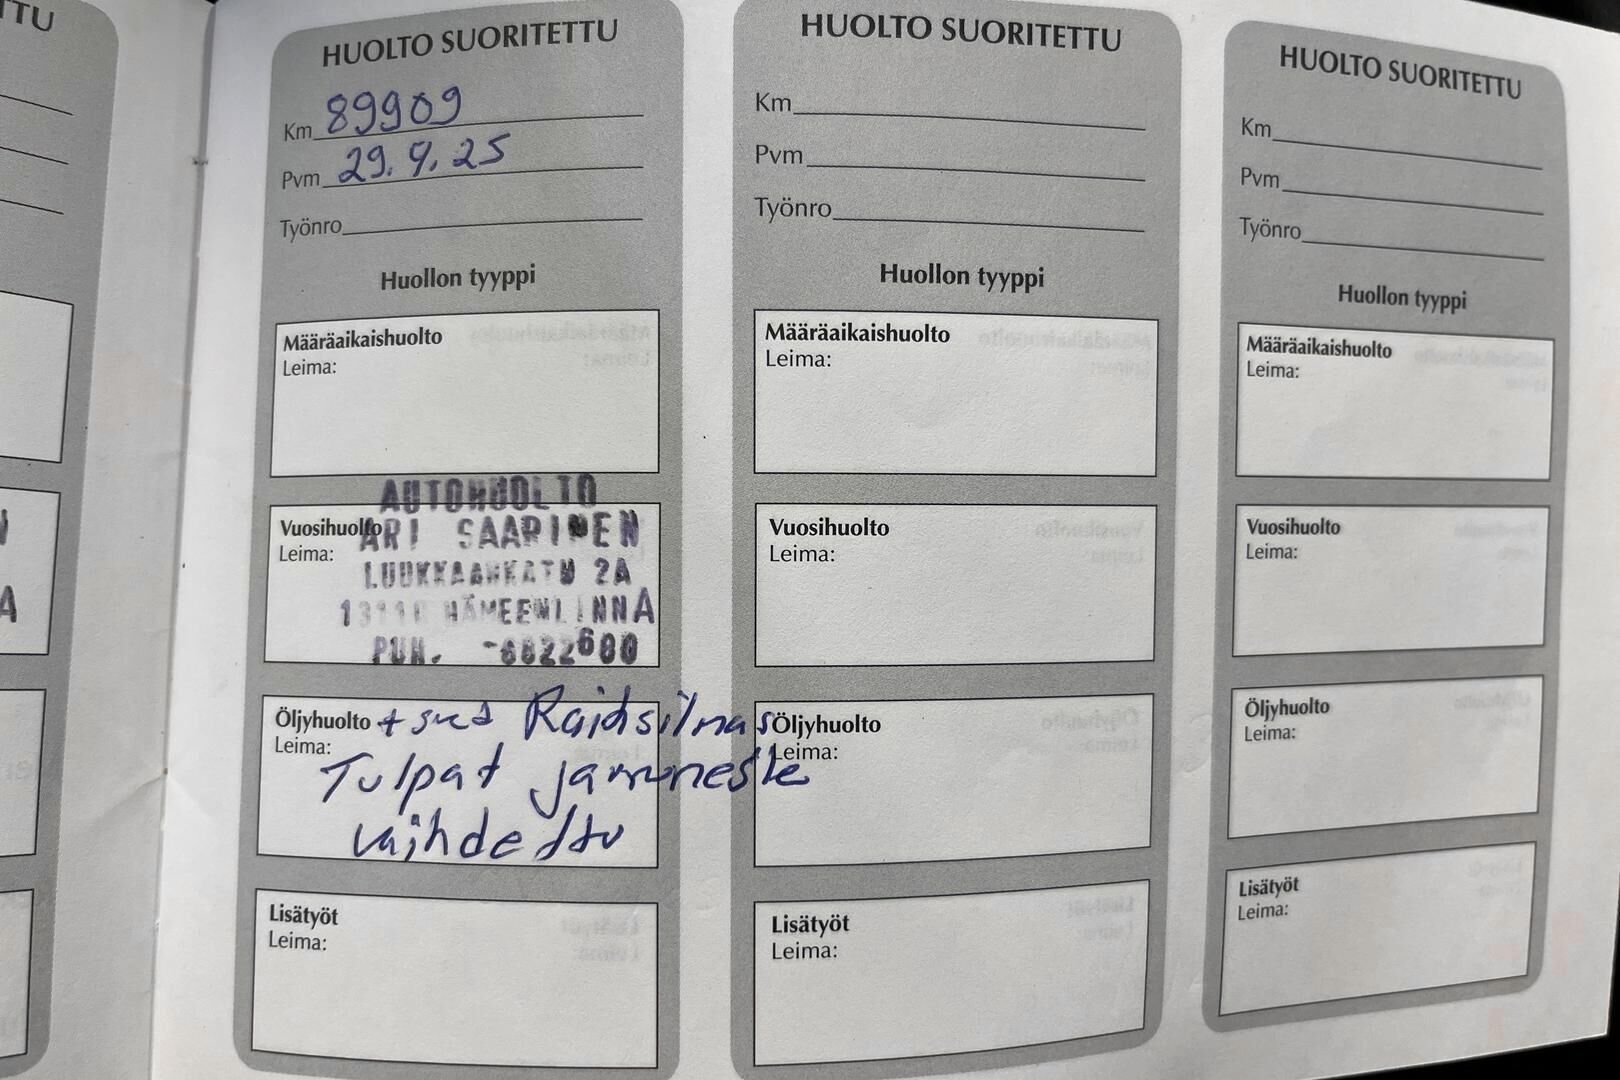 TTU
HUOLTO SUORITETTU
Km 89909
Pvm 29.9.25
Työnro
Huollon tyyppi
Määräaikaishuolto
Leima:
Vuosihuolto
Leima:
AUTOHUOLTO
ARI SAARINEN
LUUKKAANKATU 2A
13110 HÄMEENLINNA
PUH. -6822600
Öljyhuolto + sud Raitisilmas
Leima:
Tulpat jarruneste
vaihdettu
Lisätyöt
Leima:
HUOLTO SUORITETTU
Km
Pvm
Työnro
Huollon tyyppi
Määräaikaishuolto
Leima:
Vuosihuolto
Leima:
Öljyhuolto
Leima:
Lisätyöt
Leima:
HUOLTO SUORITETTU
Km
Pvm
Työnro
Huollon tyyppi
Määräaikaishuolto
Leima:
Vuosihuolto
Leima:
Öljyhuolto
Leima:
Lisätyöt
Leima: